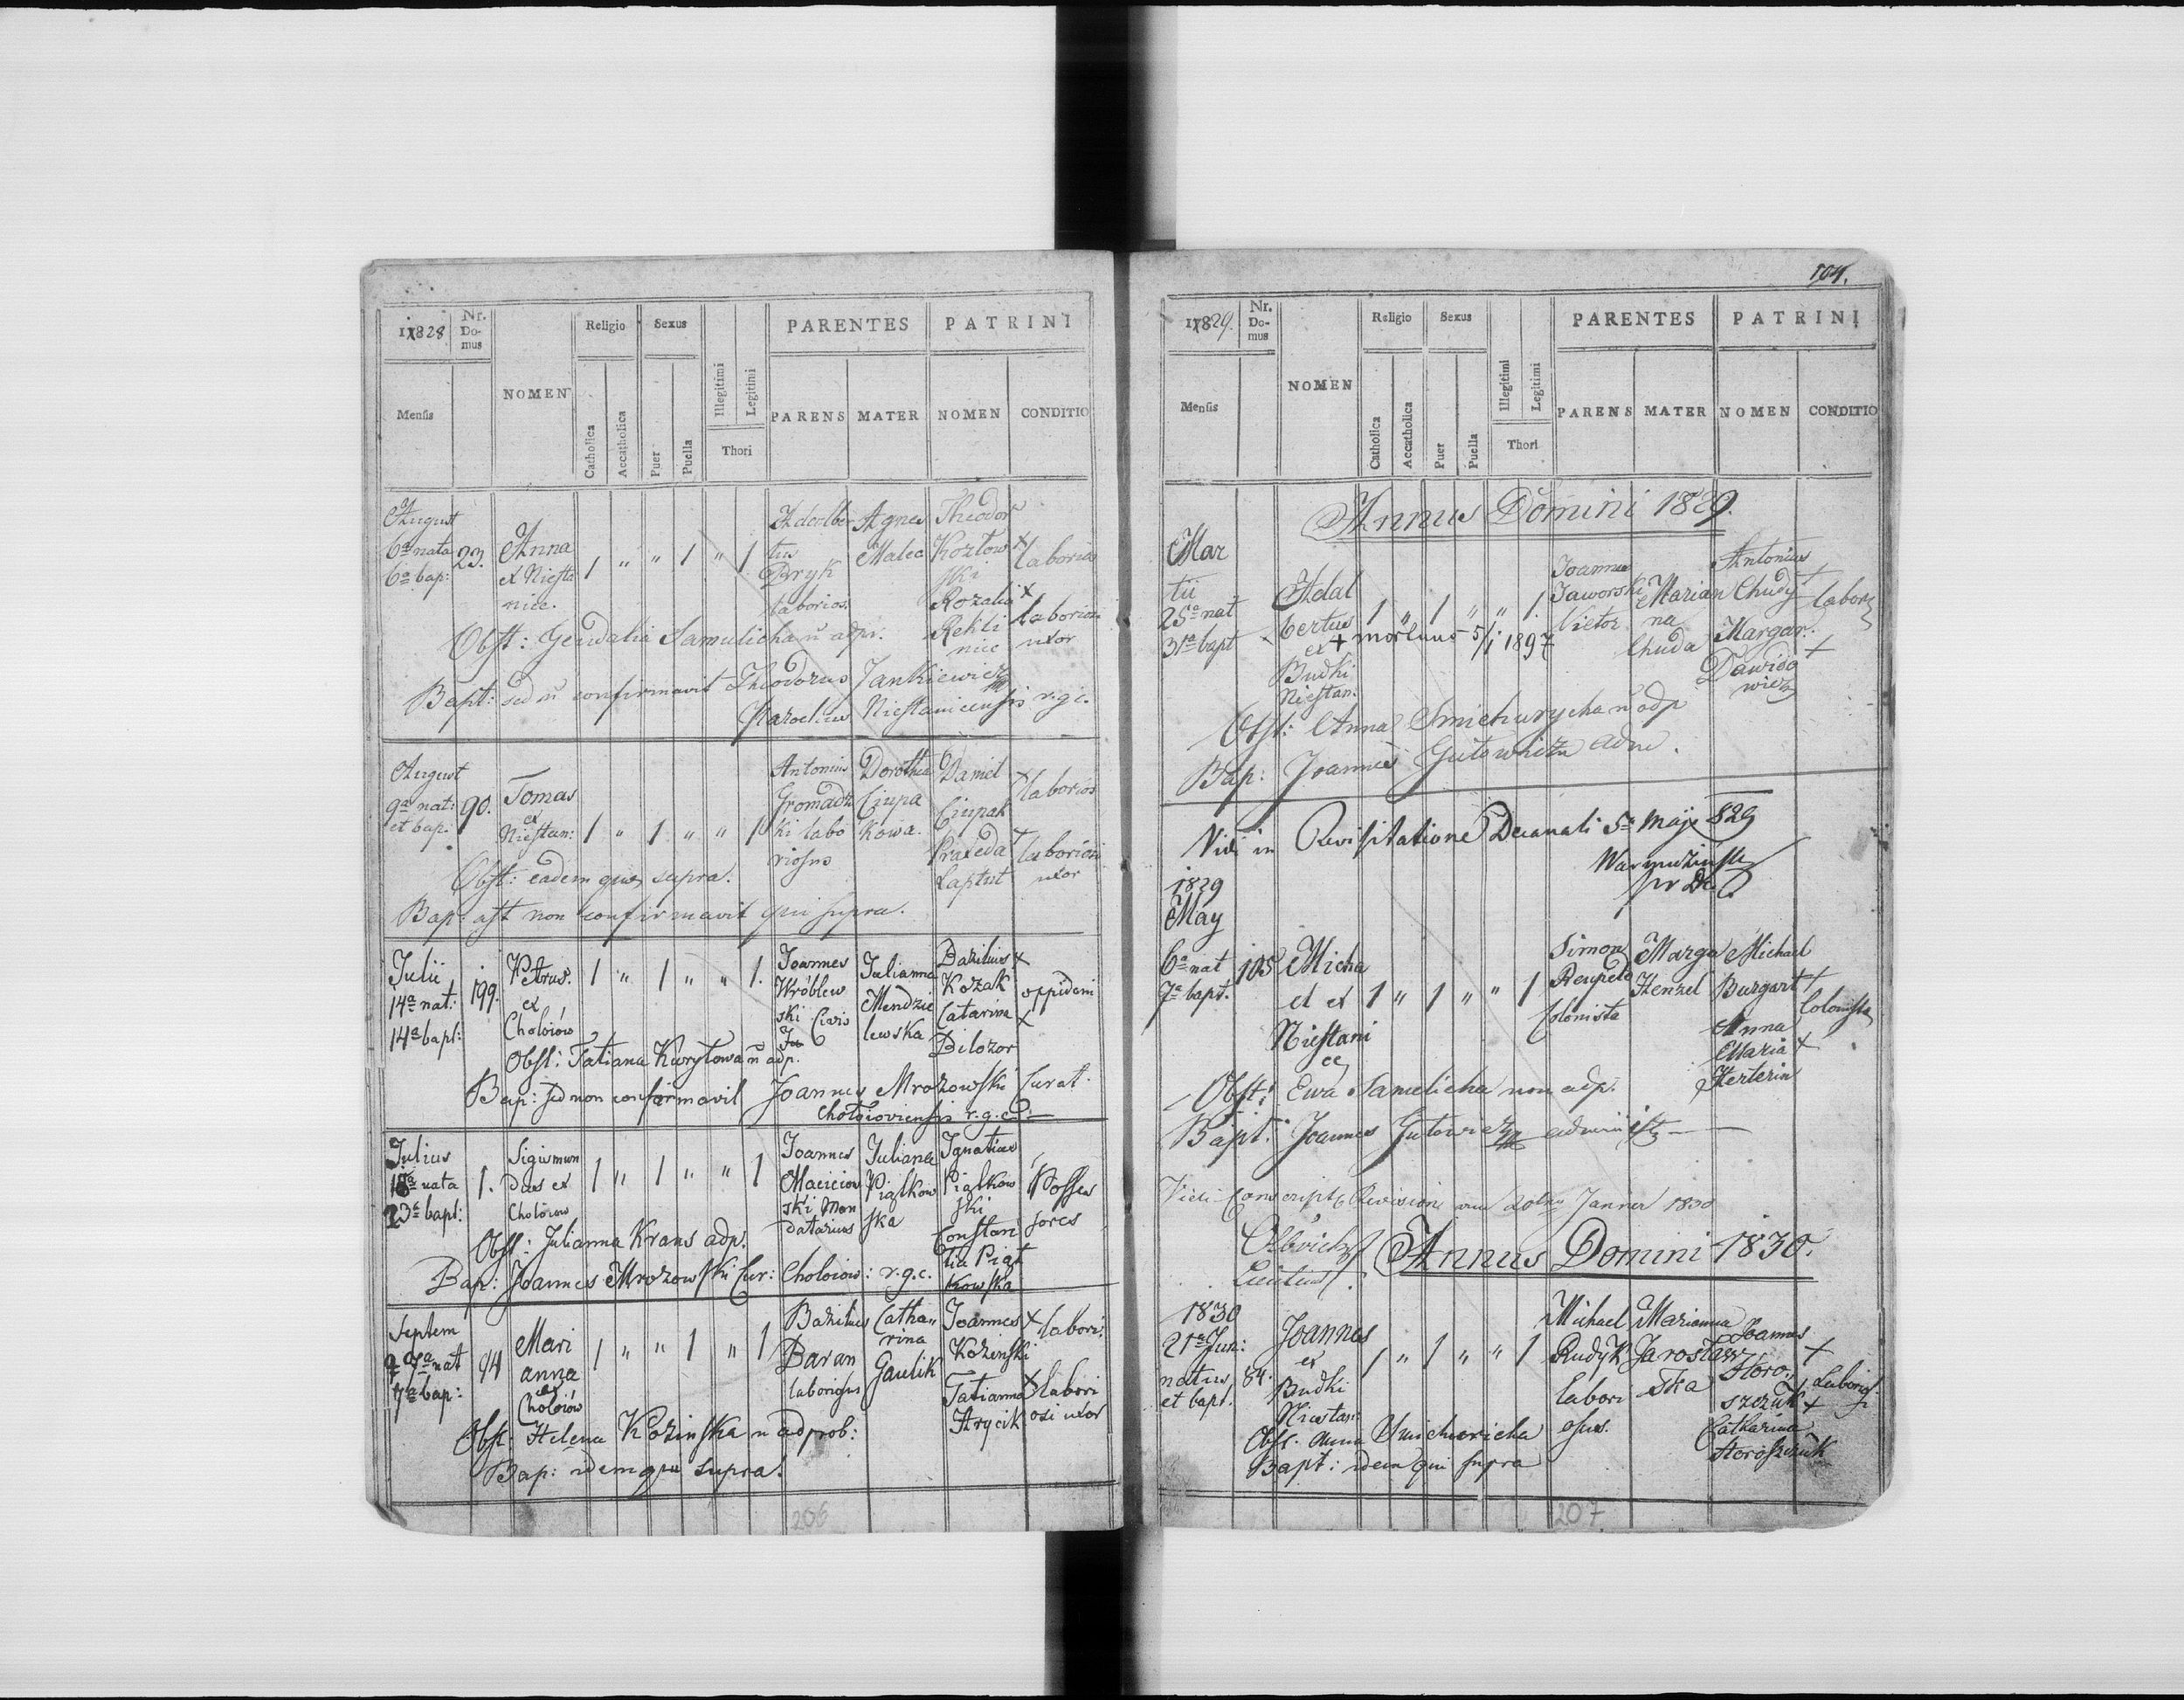 1828
Nr. Domus
NOMEN
Religio
Sexus
PARENTES
PATRINI
Mensis
Catholica
Accatholica
Puer
Puella
Illegitimi
Legitimi
Thori
PARENS
MATER
NOMEN
CONDITIO
August
6a nata
6a bap:
23.
Anna
ex Niesta
nice.
1 " " 1 " 1.
Adalber
tus
Bryk
laborios.
Agnes
Malec
Theodor
Kozłow
ski
Rozalia
Rekli
nic
x laborios
x laborios
uxor
Obst: Gendalia Samulicha n adpr:
Bapt: sed n confirmavit Theodorus Jankiewicz
Parochus Niestanicensis r.g.c.
August
9a nat:
et bap:
90.
Tomas
ex
Niestan:
1 " 1 " " 1
Antonius
Gromadz
ki labo
riosus
Dorothea
Ciupa
kowa.
Daniel
Ciupak
Praxeda
Laptut
x laborios
x laboriosi
uxor
Obst: eadem quae supra.
Bap: ast non confirmavit qui supra.
Julii
14a nat:
14a bapt:
199.
Petrus.
ex
Cholo­iów
1 " 1 " " 1.
Joannes
Wróblew
ski Civis
Julianna
Mendzie
lewska
Bazilius x
Kozak
Catarina
x
Bilozor
oppidani
Obst: Tatiana Kurylowa n adp.
Bap: sed non confirmavit Joannes Mrozowski Curat.
Choloioviensis r.g.c.
Julius
18a nata
23a bapt:
1.
Sigismun
dus ex
Choloiow
1 " 1 " " 1
Joannes
Maciciow
ski Man
datarius
Julianna
Piątkow
ska
Ignatius
Piątkow
ski
Constan
tia Piąt
kowska
Posses
sores
Obst: Julianna Kraus adp.
Bap: Joannes Mrozowski Cur: Choloiow: r.g.c.
Septem
7a nat
7a bap:
94
Mari
anna
ex
Choloiów
1 " " 1 " 1
Bazilius
Baran
laboriosus
Catha
rina
Gaulik
Joannes x
Kozinski
Tatianna x
Hrycik
labori:
labori
osi uxor
Obst: Helena Kozinska n adprob:
Bap: idem qui supra.
206
104.
1829.
Nr. Domus
NOMEN
Religio
Sexus
PARENTES
PATRINI
Mensis
Catholica
Accatholica
Puer
Puella
Illegitimi
Legitimi
Thori
PARENS
MATER
NOMEN
CONDITIO
Annus Domini 1829.
Mar
tii
25a nat
31a bapt
Adal
bertus
ex
Budki
Niestan:
1 " 1 " " 1.
+ mortuus 5/1 1897
Joannes
Jaworski
Marian
na
Chuda
Antonius
Chudy
Margar:
Dawido
wicz
x
x
labor
Obst: Anna Smichurycha n adp
Bap: Joannes Gutowicz adm.
Vidi in Revisitatione Decanali 5a Maji 829
1829
May
6a nat
7a bapt.
105
Micha
el ex
Niestani
ce
1 " 1 " " 1
Simon
Colonista
Marga
Henzel
Michael
Burgart x
Anna
Maria x
Herterin
Colonista
Obst: Ewa Samulicha non adp.
Bapt: Joannes Gutowicz administr
Annus Domini 1830.
1830
21a Jun:
natus
et bapt.
84.
Joannes
ex
Budki
Niestan:
1 " 1 " " 1
Michael
Rudyk
labori
osus.
Marianna
Jarosław
ska
Joannes
Horo
szczuk
Catharina
Horoszczuk
x
x
Laborios
Obst. Anna Smichuricha
Bapt: idem qui supra
207